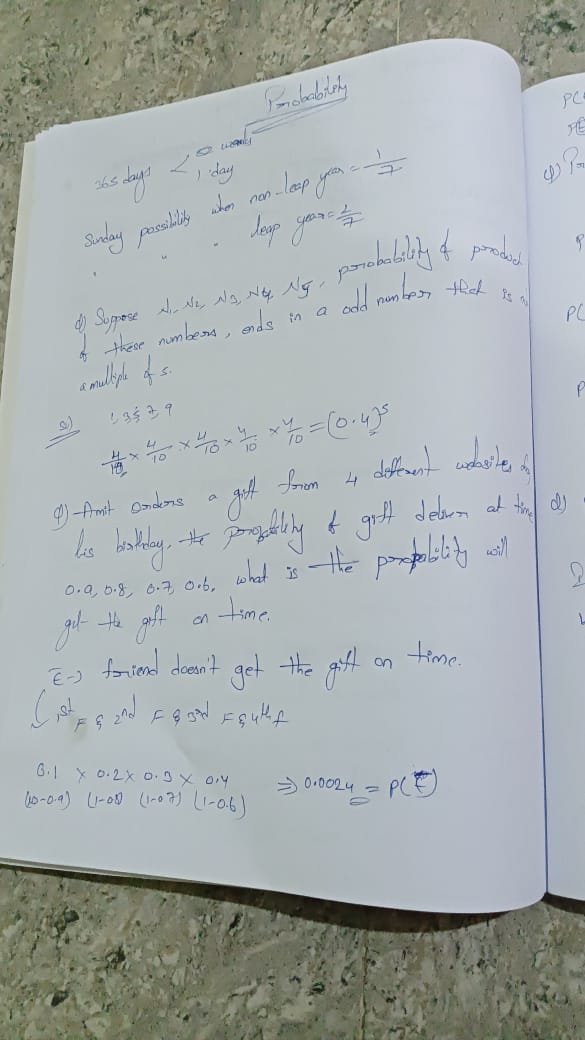 Probability
365 days < weeks
1 day
Sunday possibility when non-leap year = 1/7
" " " leap year = 2/7
Q) Suppose N1, N2, N3, N4, N5, probability of product
of these numbers, ends in a odd number that is
a multiple of 5.
1, 3, 7, 9
4/10 × 4/10 × 4/10 × 4/10 × 4/10 = (0.4)^5
Q) Amit orders a gift from 4 different websites
his birthday, the probability of gift deliver at time
0.9, 0.8, 0.7, 0.6, what is the probability will
get the gift on time.
E -> friend doesn't get the gift on time.
1st F & 2nd F & 3rd F & 4th f
0.1 × 0.2 × 0.3 × 0.4 => 0.0024 = P(E)
(1-0.8) (1-0.7) (1-0.6)